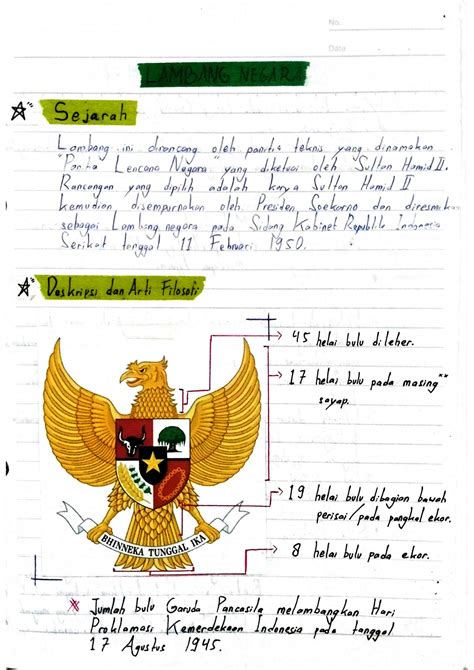 No.
Date
LAMBANG NEGARA
Sejarah
Lambang ini dirancang oleh panitia teknis yang dinamakan
"Panitia Lencana Negara" yang diketuai oleh "Sultan Hamid II.
Rancangan yang dipilih adalah karya Sultan Hamid II
kemudian disempurnakan oleh Presiden Soekarno dan diresmikan
sebagai Lambang negara pada Sidang Kabinet Republik Indonesia
Serikat tanggal 11 Februari 1950.
Deskripsi dan Arti Filosofi
45 helai bulu dileher.
17 helai bulu pada masing"
sayap.
19 helai bulu dibagian bawah
perisai/pada pangkal ekor.
8 helai bulu pada ekor.
BHINNEKA TUNGGAL IKA
Jumlah bulu Garuda Pancasila melambangkan Hari
Proklamasi Kemerdekaan Indonesia pada tanggal
17 Agustus 1945.